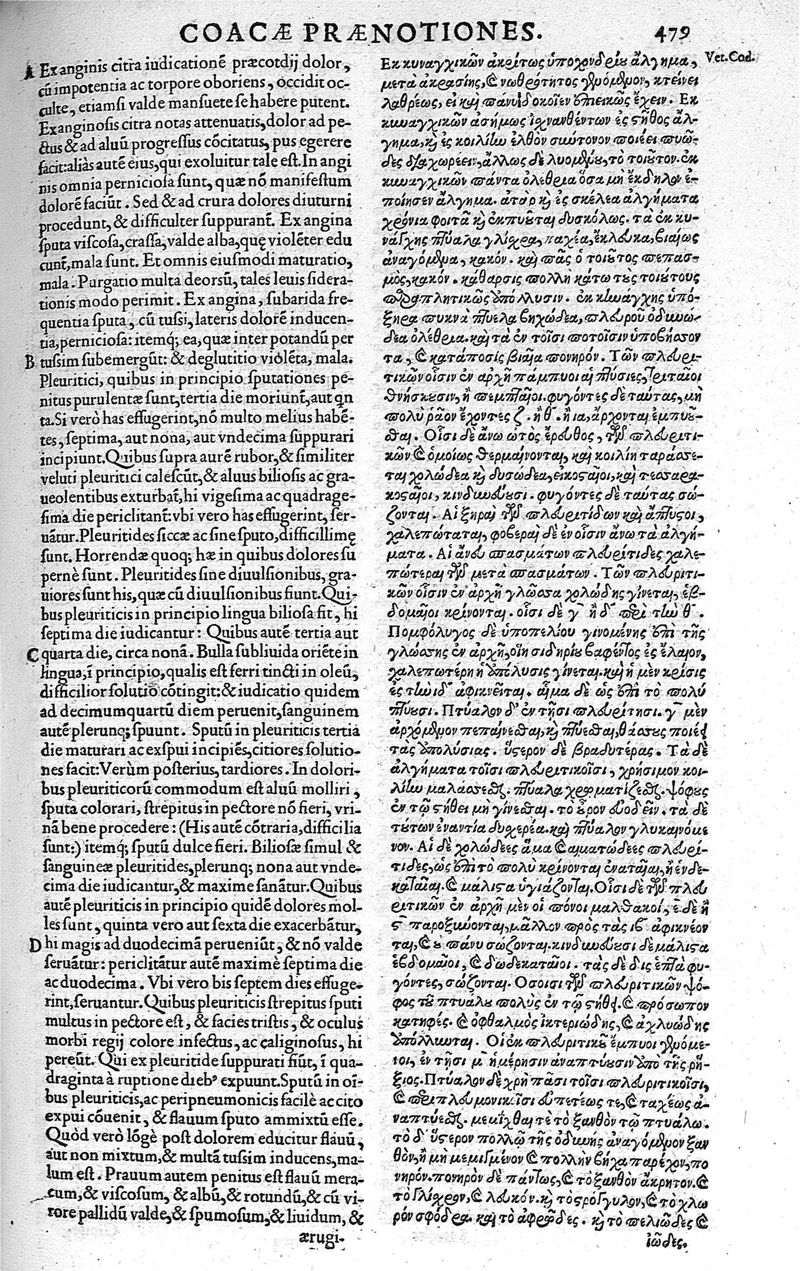 COACÆ PRÆNOTIONES. 479
A Ex anginis citra iudicationē præcotdij dolor,
cū impotentia ac torpore oboriens, occidit oc-
culte, etiamsi valde mansuete se habere putent.
Ex anginosis citra notas attenuatis, dolor ad pe-
ctus & ad aluū progressus cōcitatus, pus egerere
facit: aliàs autē eius, qui exoluitur tale est. In angi
nis omnia perniciosa sunt, quæ nō manifestum
dolorē faciūt. Sed & ad crura dolores diuturni
procedunt, & difficulter suppurant. Ex angina
sputa viscosa, crassa, valde alba, quę violēter edu
cunt, mala sunt. Et omnis eiusmodi maturatio,
mala. Purgatio multa deorsū, tales leuis sidera-
tionis modo perimit. Ex angina, subarida fre-
quentia sputa, cū tussi, lateris dolorē inducen-
tia, perniciosa: itemq; ea, quæ inter potandū per
B tussim submergūt: & deglutitio violēta, mala.
Pleuritici, quibus in principio sputationes pe-
nitus purulentæ sunt, tertia die moriunt, aut qn
ta. Si verò has effugerint, nō multo melius habē-
tes, septima, aut nona, aut vndecima suppurari
incipiunt. Quibus supra aurē rubor, & similiter
veluti pleuritici calescūt, & aluus biliosis ac gra-
ueolentibus exturbat, hi vigesima ac quadrage-
sima die periclitant: vbi vero has effugerint, ser-
uātur. Pleuritides siccæ ac sine sputo, difficillimę
sunt. Horrendæ quoq; hæ in quibus dolores su
pernè sunt. Pleuritides sine diuulsionibus, gra-
uiores sunt his, quæ cū diuulsionibus fiunt. Qui-
bus pleuriticis in principio lingua biliosa fit, hi
septima die iudicantur: Quibus autē tertia aut
C quarta die, circa nonā. Bulla subliuida oriēte in
lingua, ī principio, qualis est ferri tincti in oleū,
difficilior solutio cōtingit: & iudicatio quidem
ad decimumquartū diem peruenit, sanguinem
autē plerunq; spuunt. Sputū in pleuriticis tertia
die maturari ac expui incipiēs, citiores solutio-
nes facit: Verùm posterius, tardiores. In dolori-
bus pleuriticorū commodum est aluū molliri,
sputa colorari, strepitus in pectore nō fieri, vri-
nā bene procedere: (His autē cōtraria, difficilia
sunt:) itemq; sputū dulce fieri. Biliosæ simul &
sanguineæ pleuritides, plerunq; nona aut vnde-
cima die iudicantur, & maxime sanātur. Quibus
autē pleuriticis in principio quidē dolores mol-
les sunt, quinta vero aut sexta die exacerbātur,
D hi magis ad duodecimā perueniūt, & nō valde
seruātur: periclitātur autē maximè septima die
ac duodecima. Vbi vero bis septem dies effuge-
rint, seruantur. Quibus pleuriticis strepitus sputi
multus in pectore est, & facies tristis, & oculus
morbi regij colore infectus, ac caliginosus, hi
pereūt. Qui ex pleuritide suppurati fiūt, ī qua-
draginta à ruptione dieb⁹ expuunt. Sputū in oī-
bus pleuriticis, ac peripneumonicis facilè ac cito
expui cōuenit, & flauum sputo ammixtū esse.
Quòd verò lōgè post dolorem educitur flauū,
aut non mixtum, & multā tussim inducens, ma-
lum est. Prauum autem penitus est flauū mera-
cum, & viscosum, & albū, & rotundū, & cū vi-
rore pallidū valde, & spumosum, & liuidum, &
ærugi-
Vet. Cod.
Ἐκ κυναγχικῶν ἀκρίτως ὑποχονδρίου ἄλγημα,
μετὰ ἀκρασίης, καὶ νωθρότητος γενόμενον, κτείνει
λαθρέως, εἰ καὶ πάνυ δοκοῖεν ἐπιεικῶς ἔχειν. Ἐκ
κυναγχικῶν ἀσήμως ἰσχνανθέντων ἐς στῆθος ἄλ-
γημα, καὶ ἐς κοιλίην ἐλθὸν σύντονον ποιέει πυῶ-
δες διαχωρέειν, ἄλλως δὲ λυομένου, τὸ τοιοῦτον. ἐκ
κυναγχικῶν πάντα ὀλέθρια ὅσα μὴ ἔκδηλον ἐ-
ποίησεν ἄλγημα. ἀτὰρ καὶ ἐς σκέλεα ἀλγήματα
χρόνια φοιτᾷ καὶ ἐκπυοῦται δυσκόλως. τὰ ἐκ κυ-
νάγχης πτύαλα γλίσχρα, παχέα, ἔκλευκα, βιαίως
ἀναγόμενα, κακόν. καὶ πᾶς ὁ τοιοῦτος πεπασ-
μὸς, κακόν. κάθαρσις πολλὴ κάτω τοὺς τοιούτους
παραπληκτικῶς ἀπόλλυσιν. ἐκ κυνάγχης ὑπό-
ξηρα πυκνὰ πτύελα βηχώδεα, πλευροῦ ὀδυνώ-
δεα ὀλέθρια. καὶ τὰ ἐν τοῖσι ποτοῖσιν ὑποβήσσον
τα, καὶ κατάποσις βιαία πονηρόν. Τῶν πλευρι-
τικῶν οἷσιν ἐν ἀρχῇ πάμπυοι αἱ πτύσιες, τριταῖοι
θνήσκουσιν, ἢ πεμπταῖοι. φυγόντες δὲ ταύτας, μὴ
πολὺ ῥᾷον ἔχοντες ζ. ἢ θ. ἢ ια, ἄρχονται ἐμπυοῦ-
σθαι. Οἷσι δὲ ἄνω ὠτὸς ἔρευθος, τῶν πλευριτι-
κῶν καὶ ὁμοίως θερμαίνονται, καὶ κοιλίη ταράσσε-
ται χολώδεα καὶ δυσώδεα, εἰκοσταῖοι, καὶ τεσσαρα-
κοσταῖοι, κινδυνεύουσι. φυγόντες δὲ ταύτας σώ-
ζονται. Αἱ ξηραὶ τῶν πλευριτίδων καὶ ἄπτυστοι,
χαλεπώταται, φοβεραὶ δὲ ἐν οἷσιν ἄνω τὰ ἀλγή-
ματα. Αἱ ἄνευ σπασμάτων πλευρίτιδες χαλε-
πώτεραι τῶν μετὰ σπασμάτων. Τῶν πλευριτι-
κῶν οἷσιν ἐν ἀρχῇ γλῶσσα χολώδης γίνεται, ἑβ-
δομαῖοι κρίνονται. οἷσι δὲ γ ἢ δ περὶ τὴν θ.
Πομφόλυγος δὲ ὑποπελίου γινομένης ἐπὶ τῆς
γλώσσης ἐν ἀρχῇ, οἵη σιδηρίου βαφέντος ἐς ἔλαιον,
χαλεπωτέρη ἡ ἀπόλυσις γίνεται. καὶ ἡ μὲν κρίσις
ἐς τὴν ιδ ἀφικνεῖται. αἷμα δὲ ὡς ἐπὶ τὸ πολὺ
πτύουσι. Πτύαλον δ᾽ ἐν τῇσι πλευρίτισι. γ μὲν
ἀρχόμενον πεπαίνεσθαι, καὶ πτύεσθαι, θάσσους ποιεῖ
τὰς ἀπολύσιας. ὕστερον δὲ βραδυτέρας. Τὰ δὲ
ἀλγήματα τοῖσι πλευριτικοῖσι, χρήσιμον κοι-
λίην μαλάσσεσθαι. πτύαλα χρωματίζεσθαι. ψόφους
ἐν τῷ στήθει μὴ γίνεσθαι. τὸ οὖρον εὐοδεῖν. τὰ δὲ
τούτων ἐναντία δυσχερέα. καὶ πτύαλον γλυκαινόμε
νον. Αἱ δὲ χολώδεες ἅμα καὶ αἱματώδεες πλευρί-
τιδες, ὡς ἐπὶ τὸ πολὺ κρίνονται ἐναταῖαι, ἢ ἑνδε-
καταῖαι. καὶ μάλιστα ὑγιάζονται. Οἷσι δὲ τῶν πλευ
ριτικῶν ἐν ἀρχῇ μὲν οἱ πόνοι μαλθακοί, ε δὲ ἢ
ς παροξύνονται, μᾶλλον πρὸς τὰς ιβ ἀφικνέον
ται, καὶ οὐ πάνυ σώζονται. κινδυνεύουσι δὲ μάλιστα
ἑβδομαῖοι, καὶ δωδεκαταῖοι. τὰς δὲ δὶς ἑπτὰ φυ-
γόντες, σώζονται. Ὁσοισι τῶν πλευριτικῶν ψό-
φος τοῦ πτυάλου πολὺς ἐν τῷ στήθει. καὶ πρόσωπον
κατηφές. καὶ ὀφθαλμὸς ἰκτεριώδης, καὶ ἀχλυώδης
ἀπόλλυνται. Οἱ ἐκ πλευριτικοῦ ἔμπυοι γενόμε-
νοι, ἐν τῇσι μ ἡμέρῃσιν ἀναπτύουσιν ἀπὸ τῆς ῥή-
ξιος. Πτύαλον δὲ χρὴ πᾶσι τοῖσι πλευριτικοῖσι,
καὶ περιπλευμονικοῖσι εὐπετέως τε, καὶ ταχέως ἀ-
ναπτύεσθαι. μεμίχθαι τε τὸ ξανθὸν τῷ πτυάλῳ.
τὸ δ᾽ ὕστερον πολλῷ τῆς ὀδύνης ἀναγόμενον ξαν
θὸν, ἢ μὴ μεμιγμένον καὶ πολλὴν βῆχα παρέχον, πο
νηρόν. πονηρὸν δὲ πάντως, καὶ τὸ ξανθὸν ἄκρητον. καὶ
τὸ γλίσχρον, καὶ λευκὸν. καὶ τὸ στρογγύλον, καὶ τὸ χλω
ρὸν σφόδρα. καὶ τὸ ἀφρῶδες. καὶ τὸ πελιῶδες καὶ
ἰῶδες.